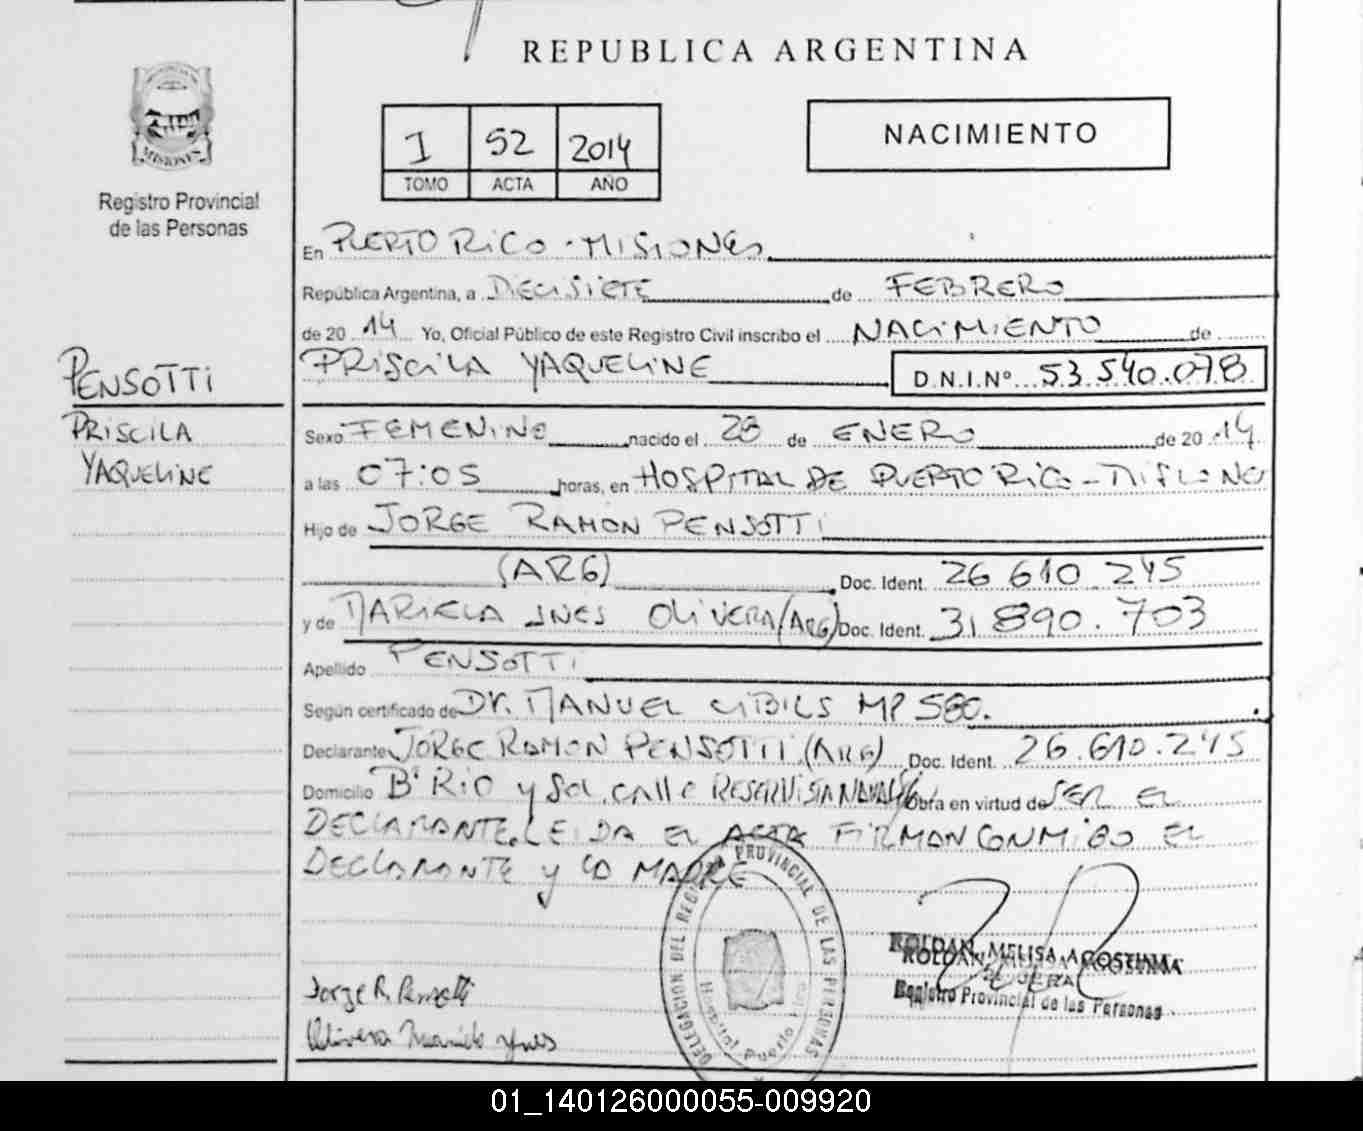 REPUBLICA ARGENTINA
MISIONES
Registro Provincial
de las Personas
I 52 2014
TOMO ACTA AÑO
NACIMIENTO
En PUERTO RICO - MISIONES
República Argentina, a DIECISIETE de FEBRERO
de 20 14 Yo, Oficial Público de este Registro Civil inscribo el NACIMIENTO de
PRISCILA YAQUELINE D.N.I.Nº 53.540.078
PENSOTTI
PRISCILA
YAQUELINE
Sexo FEMENINO nacido el 28 de ENERO de 20 14
a las 07:05 horas, en HOSPITAL DE PUERTO RICO - MISIONES
Hijo de JORGE RAMON PENSOTTI
(ARG) Doc. Ident. 26.610.245
y de MARIELA INES OLIVERA (ARG) Doc. Ident. 31.890.703
Apellido PENSOTTI
Según certificado de Dr. MANUEL CIBILS MP 580.
Declarante JORGE RAMON PENSOTTI (ARG) Doc. Ident. 26.610.245
Domicilio Bº RIO y SOL CALLE Obra en virtud de SER EL
DECLARANTE. LEIDA EL ACTA FIRMAN CONMIGO EL
DECLARANTE y LA MADRE
Jorge R. Pensotti
Olivera Mariela Ynes
DELEGACION DEL REGISTRO PROVINCIAL DE LAS PERSONAS
Hospital Puerto Rico
ROLDAN, MELISA AGOSTINA
Registro Provincial de las Personas
01_140126000055-009920